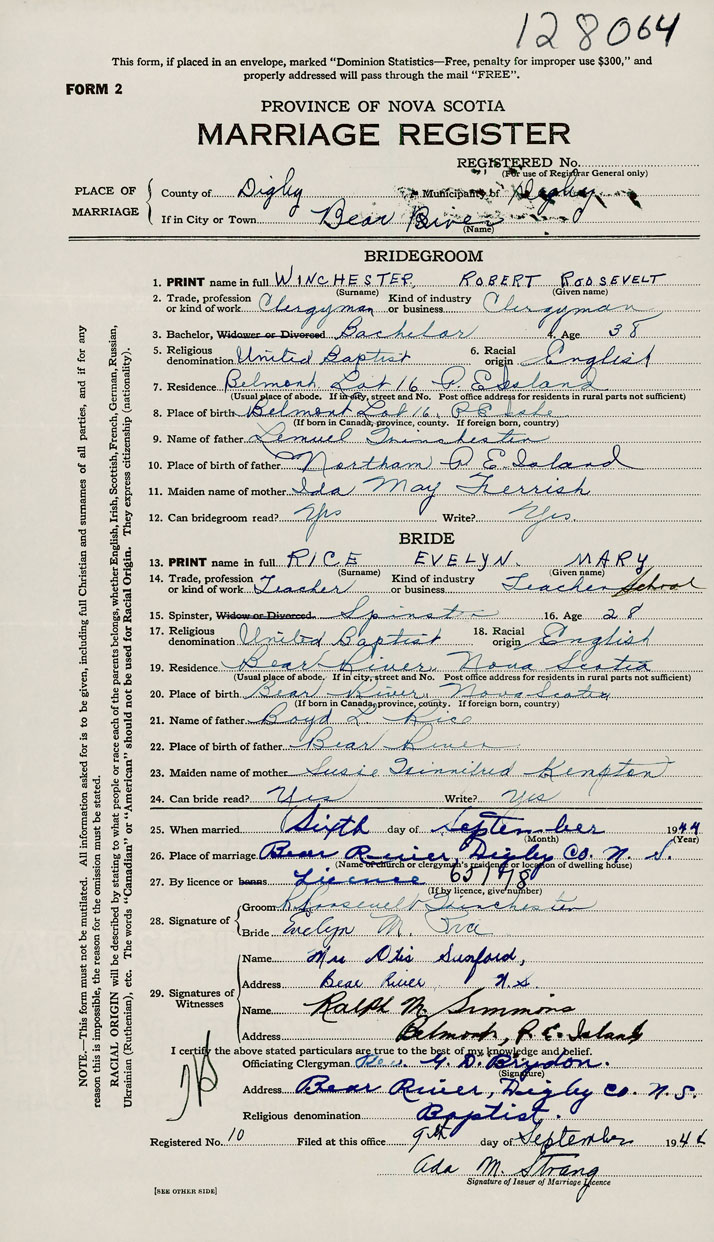 128064
This form, if placed in an envelope, marked "Dominion Statistics—Free, penalty for improper use $300," and
properly addressed will pass through the mail "FREE".
FORM 2
PROVINCE OF NOVA SCOTIA
MARRIAGE REGISTER
REGISTERED No.
(For use of Registrar General only)
PLACE OF MARRIAGE
County of Digby Municipality of Digby
If in City or Town Bear River
(Name)
BRIDEGROOM
1. PRINT name in full WINCHESTER, ROBERT ROOSEVELT
(Surname) (Given name)
2. Trade, profession or kind of work Clergyman Kind of industry or business Clergyman
3. Bachelor, Widower or Divorced Bachelor 4. Age 38
5. Religious denomination United Baptist 6. Racial origin English
7. Residence Belmont Lot 16 P. E. Island
(Usual place of abode. If in city, street and No. Post office address for residents in rural parts not sufficient)
8. Place of birth Belmont Lot 16, P E
(If born in Canada, province, county. If foreign born, country)
9. Name of father Lemuel Winchester
10. Place of birth of father Northam P. E. Island
11. Maiden name of mother Ida May
12. Can bridegroom read? Yes Write? Yes.
BRIDE
13. PRINT name in full RICE EVELYN. MARY
(Surname) (Given name)
14. Trade, profession or kind of work Teacher Kind of industry or business Teacher school
15. Spinster, Widow or Divorced Spinster 16. Age 28
17. Religious denomination United Baptist 18. Racial origin English
19. Residence Bear River, Nova Scotia
(Usual place of abode. If in city, street and No. Post office address for residents in rural parts not sufficient)
20. Place of birth Bear River, Nova Scotia
(If born in Canada, province, county. If foreign born, country)
21. Name of father Boyd L. Rice
22. Place of birth of father Bear River
23. Maiden name of mother Susie Winnifred Kempton
24. Can bride read? Yes Write? Yes
25. When married Sixth day of September 1944
(Month) (Year)
26. Place of marriage Bear River, Digby Co. N. S.
(Name of church or clergyman's residence or location of dwelling house)
27. By licence or banns Licence 65178
(If by licence, give number)
28. Signature of
Groom R. Roosevelt Winchester
Bride Evelyn M. Rice
29. Signatures of Witnesses
Name Mrs Otis
Address Bear River N.S.
Name Ralph M. Simmons
Address Belmont, P. E. Island
I certify the above stated particulars are true to the best of my knowledge and belief.
Officiating Clergyman Rev. G. D. Brydon.
(Signature)
Address Bear River, Digby Co. N. S.
Religious denomination Baptist.
Registered No. 10 Filed at this office 9th day of September 194
Ada M. Strang
Signature of Issuer of Marriage Licence
[SEE OTHER SIDE]
NOTE.—This form must not be mutilated. All information asked for is to be given, including full Christian and surnames of all parties, and if for any
reason this is impossible, the reason for the omission must be stated.
RACIAL ORIGIN will be described by stating to what people or race each of the parents belongs, whether English, Irish, Scottish, French, German, Russian,
Ukrainian (Ruthenian), etc. The words "Canadian" or "American" should not be used for Racial Origin. They express citizenship (nationality).